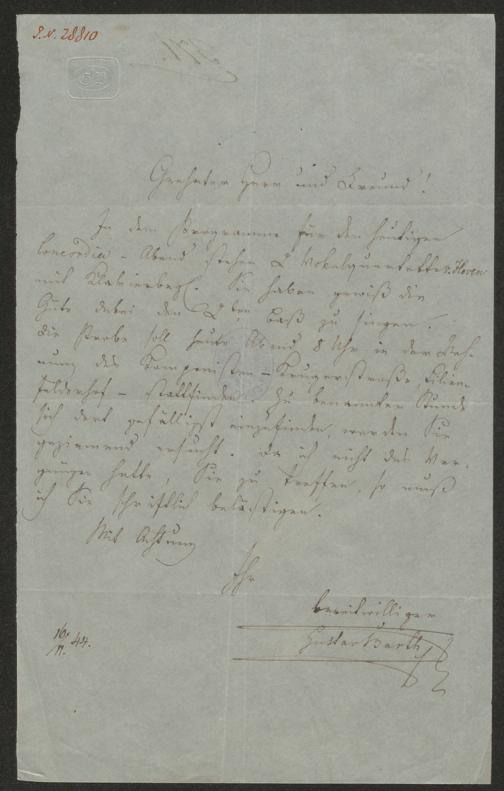 I.N. 28810
Geehrter Herr und Freund!
In dem Programme für den heutigen
Concordia-Abend stehen 2 Vokalquartette v. Hoven
mit Klavierbegl. Sie haben gewiß die
Güte dabei den 2ten Baß zu singen.
Die Probe soll heute Abend 8 Uhr in der Woh-
nung des Komponisten – Krugerstraße, Lilien-
felderhof – stattfinden. Zu benannter Stunde
sich dort gefälligst einzufinden, werden Sie
geziemend ersucht. Da ich nicht das Ver-
gnügen hatte, Sie zu treffen, so muß
ich Sie schriftlich belästigen.
Mit Achtung
Ihr
bereitwilliger
Gustav Barth
16/11 44.